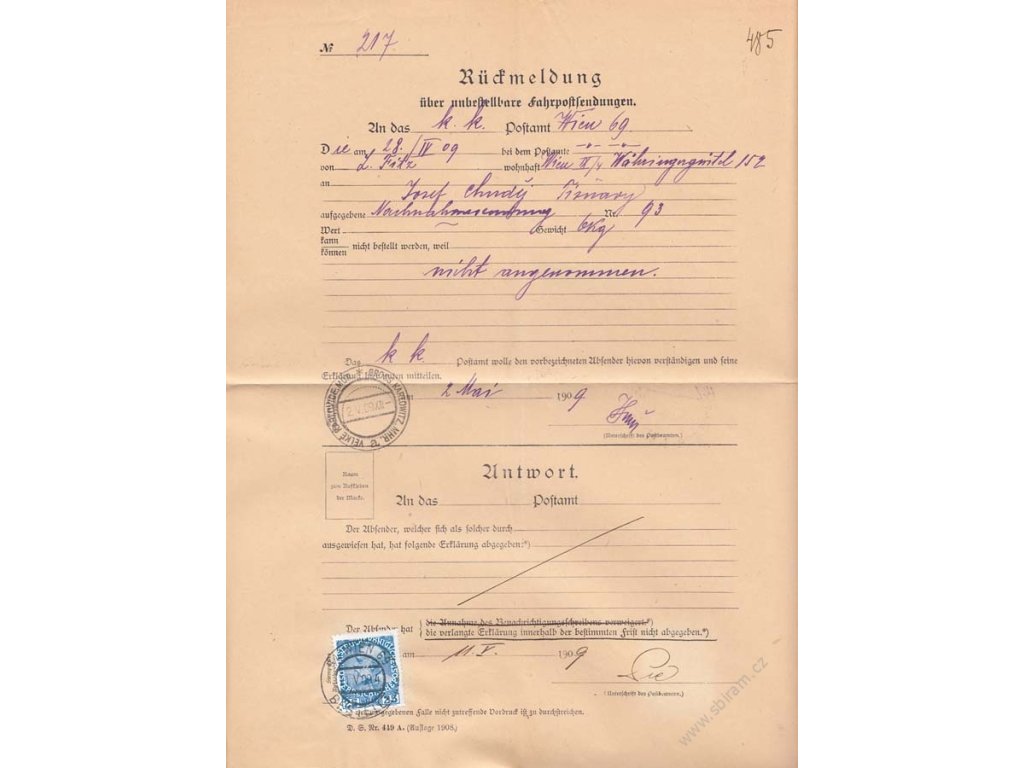 № 217.
485
Rückmeldung
über unbestellbare Fahrpostsendungen.
An das k. k. Postamt Wien 69.
Die am 28./IV 09 bei dem Postamte -„- -„-
von L. Fitz wohnhaft Wien
an
Josef Chudý
aufgegebene Nachnahmesendung Nr. 93
Wert Gewicht 6Kg
kann
können nicht bestellt werden, weil
nicht angenommen.
Das k k. Postamt wolle den vorbezeichneten Absender hievon verständigen und seine
Erklärung mitteilen.
GROSS KARLOWITZ, MHR.
VELKÉ KARLOVICE
2 Mai 1909
(Unterschrift des Postbeamten.)
Raum
zum Aufkleben
der Marke.
Antwort.
An das Postamt
Der Absender, welcher sich als solcher durch
ausgewiesen hat, hat folgende Erklärung abgegeben:*)
Der Absender hat } die Annahme des Benachrichtigungsschreibens verweigert.*)
die verlangte Erklärung innerhalb der bestimmten Frist nicht abgegeben.*)
am 11. V. 1909
WIEN 69
25
(Unterschrift des Postbeamten.)
gegebenen Falle nicht zutreffende Vordruck ist zu durchstreichen.
D. S. Nr. 449 A. (Auflage 1908.)
www.sbiram.cz